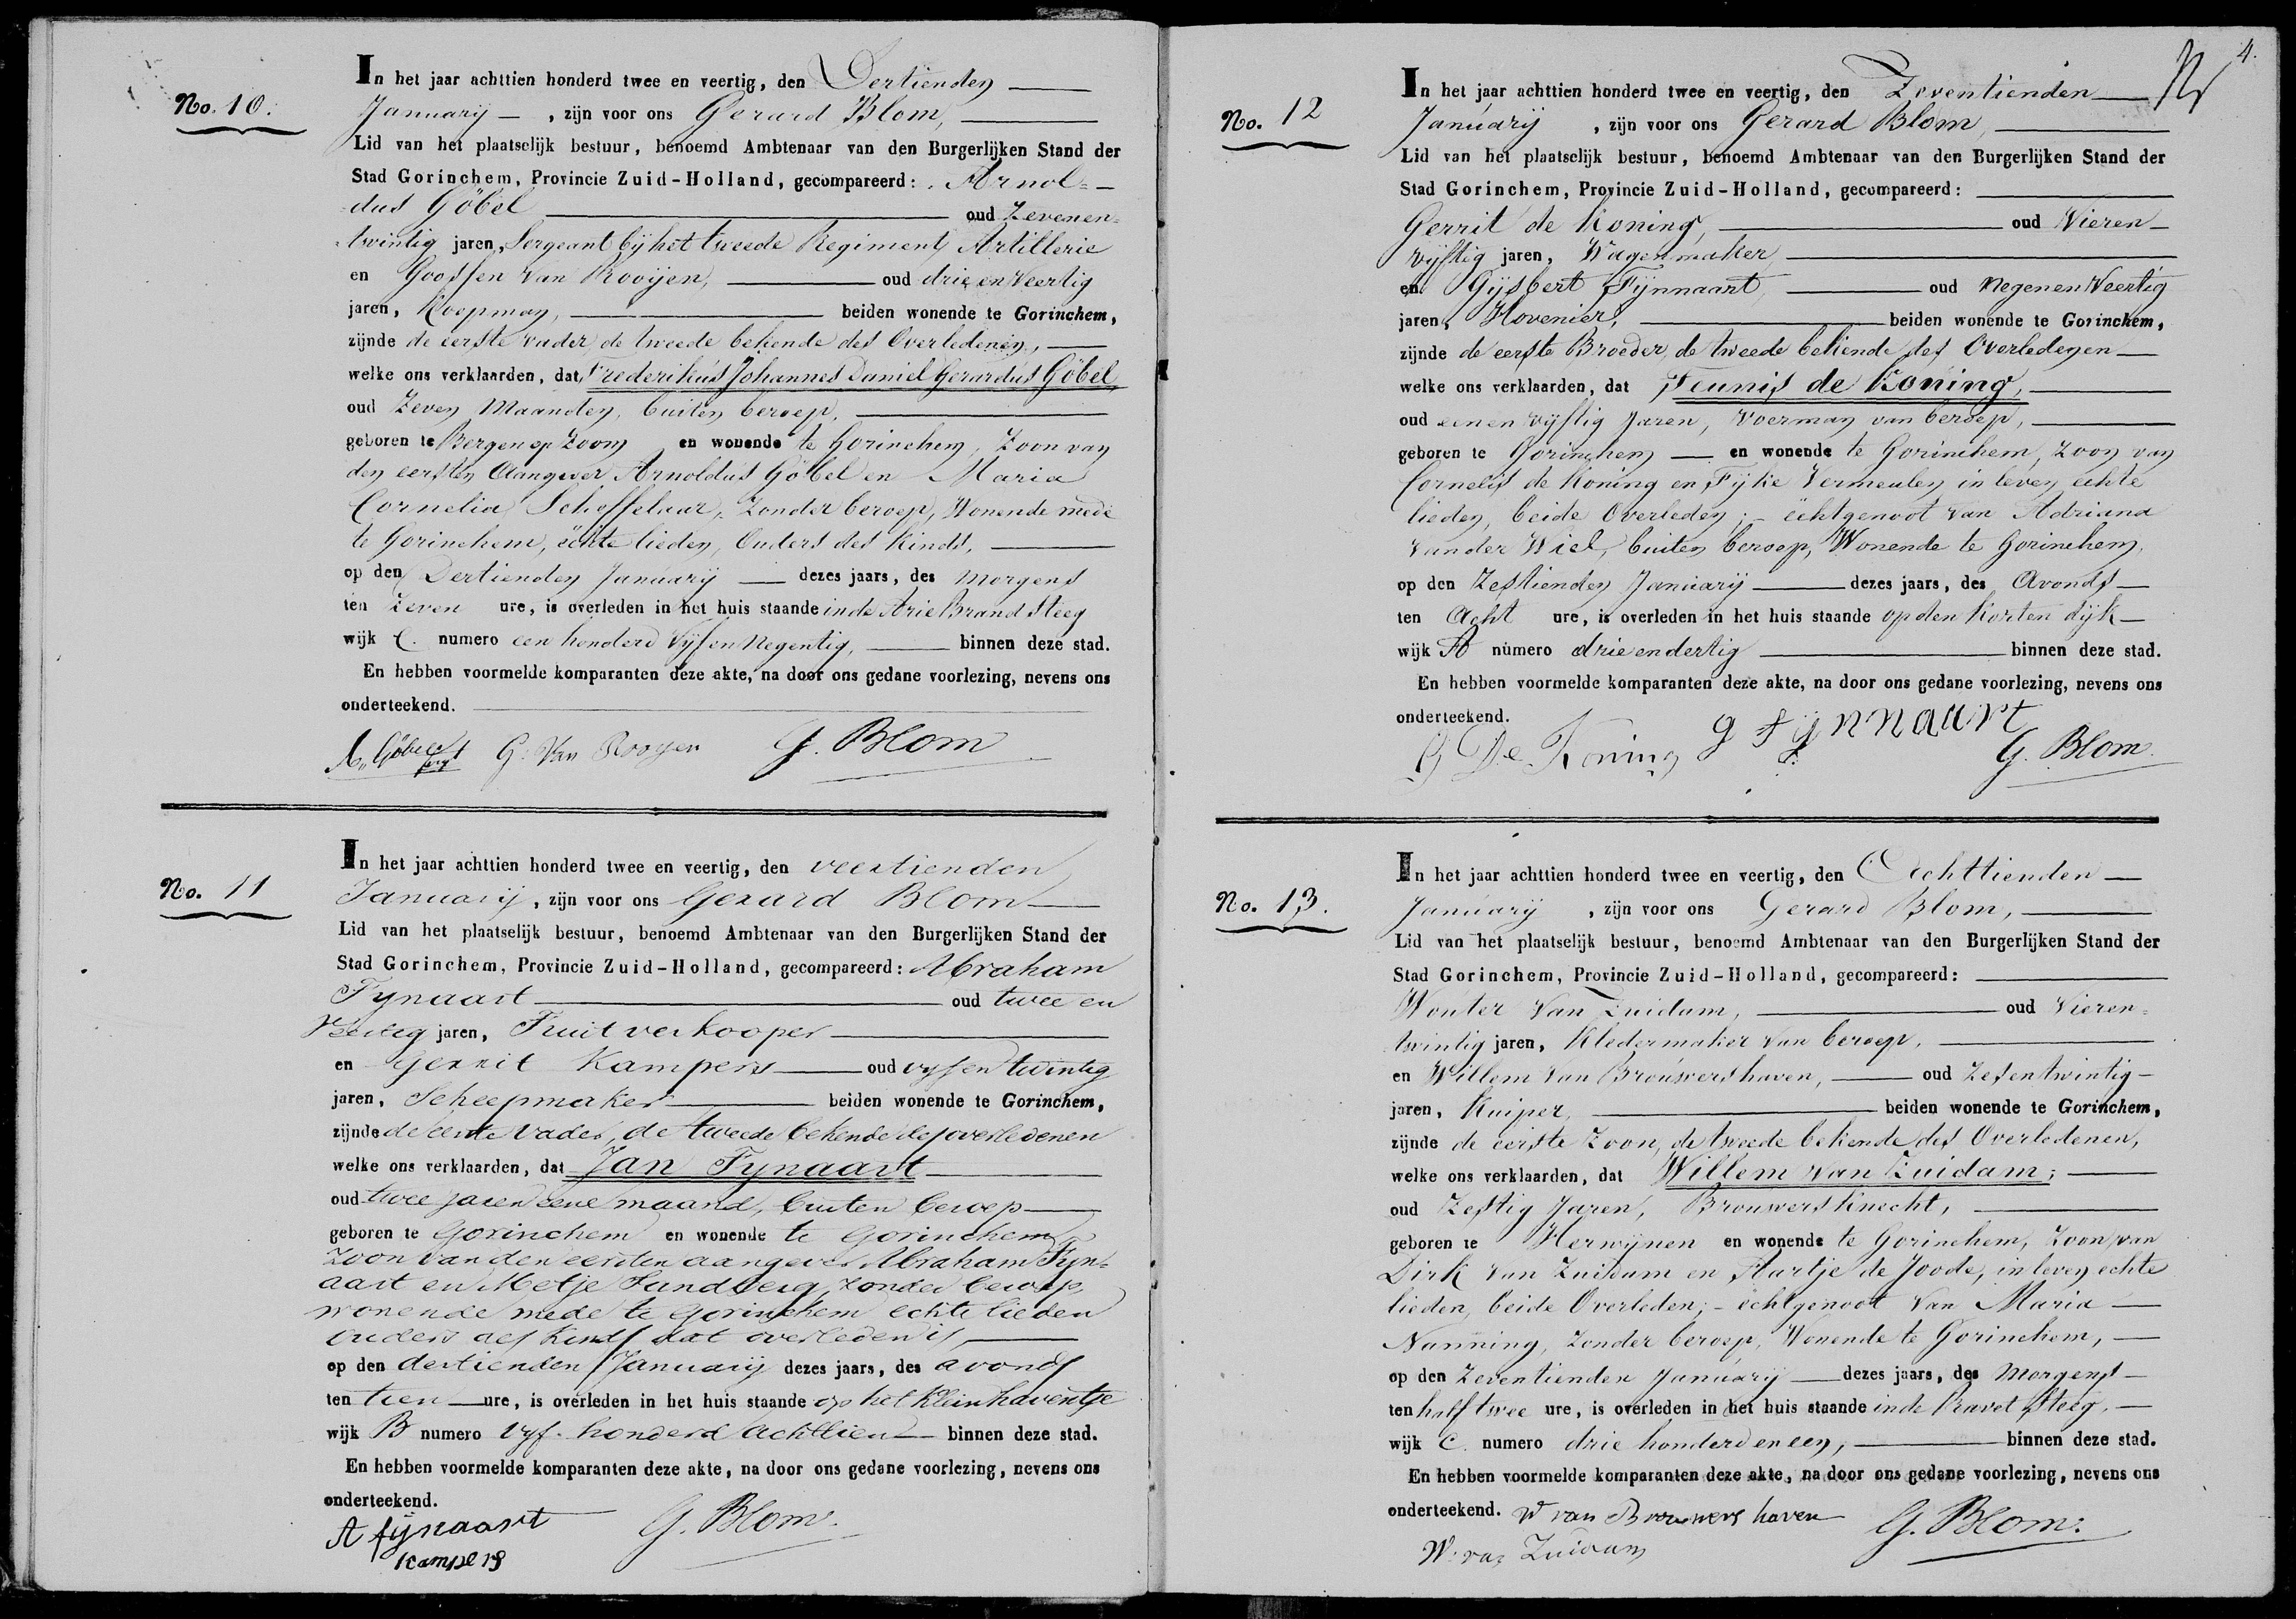 No. 10.
In het jaar achttien honderd twee en veertig, den Dertienden
Januarij , zijn voor ons Gerard Blom,
Lid van het plaatselijk bestuur, benoemd Ambtenaar van den Burgerlijken Stand der
Stad Gorinchem, Provincie Zuid-Holland, gecompareerd: Arnol=
dus Göbel oud Zevenen=
twintig jaren, Sergeant bij het tweede Regiment Artillerie
en Goossen van Rooijen, oud drie en Veertig
jaren, Koopman, beiden wonende te Gorinchem,
zijnde de eerste vader de tweede bekende des Overledenen,
welke ons verklaarden, dat Frederikus Johannes Daniel Gerardus Göbel
oud Zeven Maanden, buiten beroep,
geboren te Bergen op Zoom en wonende te Gorinchem, Zoon van
den eersten Aangever Arnoldus Göbel en Maria
Cornelia Schoffelaar, Zonder beroep, Wonende mede
te Gorinchem, echte lieden, Ouders des Kinds,
op den Dertienden Januarij dezes jaars, des Morgens
ten Zeven ure, is overleden in het huis staande in de Arie Brand Steeg
wijk C. numero een honderd Vijf en Negentig, binnen deze stad.
En hebben voormelde komparanten deze akte, na door ons gedane voorlezing, nevens ons
onderteekend.
A. Göbel G. Van Rooyen G. Blom
No. 11
In het jaar achttien honderd twee en veertig, den veertienden
Januarij, zijn voor ons Gerard Blom
Lid van het plaatselijk bestuur, benoemd Ambtenaar van den Burgerlijken Stand der
Stad Gorinchem, Provincie Zuid-Holland, gecompareerd: Abraham
Fynaart oud twee en
Veertig jaren, Fruitverkooper
en Gerrit Kampers oud vyf en twintig
jaren, Scheepmaker beiden wonende te Gorinchem,
zijnde de eerste Vader, de tweede bekende des overledenen
welke ons verklaarden, dat Jan Fynaart
oud twee jaren eene maand, buiten beroep
geboren te Gorinchem en wonende te Gorinchem
Zoon van den eersten aangever Abraham Fyn=
aart en Metje Sandberg, zonder beroep,
wonende mede te Gorinchem echte lieden
ouders des Kinds dat overleden is,
op den dertienden Januarij dezes jaars, des avonds
ten tien ure, is overleden in het huis staande op het Kleinhaventje
wijk B numero Vyf honderd achttien binnen deze stad.
En hebben voormelde komparanten deze akte, na door ons gedane voorlezing, nevens ons
onderteekend.
A fijnaart G. Blom.
Kampers
4.
No. 12
In het jaar achttien honderd twee en veertig, den Zeventienden
Januarij , zijn voor ons Gerard Blom,
Lid van het plaatselijk bestuur, benoemd Ambtenaar van den Burgerlijken Stand der
Stad Gorinchem, Provincie Zuid-Holland, gecompareerd:
Gerrit de Koning, oud Vieren-
vijftig jaren, Wagenmaker,
en Gijsbert Fijnnaart, oud Negen en Veertig
jaren, Hovenier, beiden wonende te Gorinchem,
zijnde de eerste Broeder de tweede bekende des Overledenen
welke ons verklaarden, dat Teunis de Koning,
oud een en vijftig Jaren, Voerman van beroep,
geboren te Gorinchem en wonende te Gorinchem, Zoon van
Cornelis de Koning en Fijkie Vermeulen in leven echte
lieden, beide Overleden; - echtgenoot van Adriana
van der Wiel, buiten beroep, Wonende te Gorinchem,
op den Zestienden Januarij dezes jaars, des Avonds
ten Acht ure, is overleden in het huis staande op den Korten dijk
wijk A numero drie en dertig binnen deze stad.
En hebben voormelde komparanten deze akte, na door ons gedane voorlezing, nevens ons
onderteekend.
G De Koning g fijnnaart G. Blom.
No. 13.
In het jaar achttien honderd twee en veertig, den Achttienden
Januarij , zijn voor ons Gerard Blom,
Lid van het plaatselijk bestuur, benoemd Ambtenaar van den Burgerlijken Stand der
Stad Gorinchem, Provincie Zuid-Holland, gecompareerd:
Wouter Van Zuidam, oud Vieren=
twintig jaren, Kledermaker van beroep,
en Willem Van Brouwershaven, oud Zesentwintig
jaren, Kuiper, beiden wonende te Gorinchem,
zijnde de eerste Zoon, de tweede bekende des Overledenen,
welke ons verklaarden, dat Willem van Zuidam;
oud Zestig Jaren, Brouwersknecht,
geboren te Herwijnen en wonende te Gorinchem, Zoon van
Dirk van Zuidam en Aartje de Joode, in leven echte
lieden, beide Overleden; - echtgenoot van Maria
Nanning, Zonder beroep, Wonende te Gorinchem,
op den Zeventienden Januarij dezes jaars, des Morgens
ten half twee ure, is overleden in het huis staande in de Kravet Steeg,
wijk C. numero drie honderd en een, binnen deze stad.
En hebben voormelde komparanten deze akte, na door ons gedane voorlezing, nevens ons
onderteekend. W van Brouwers haven G. Blom.
W. van Zuidam